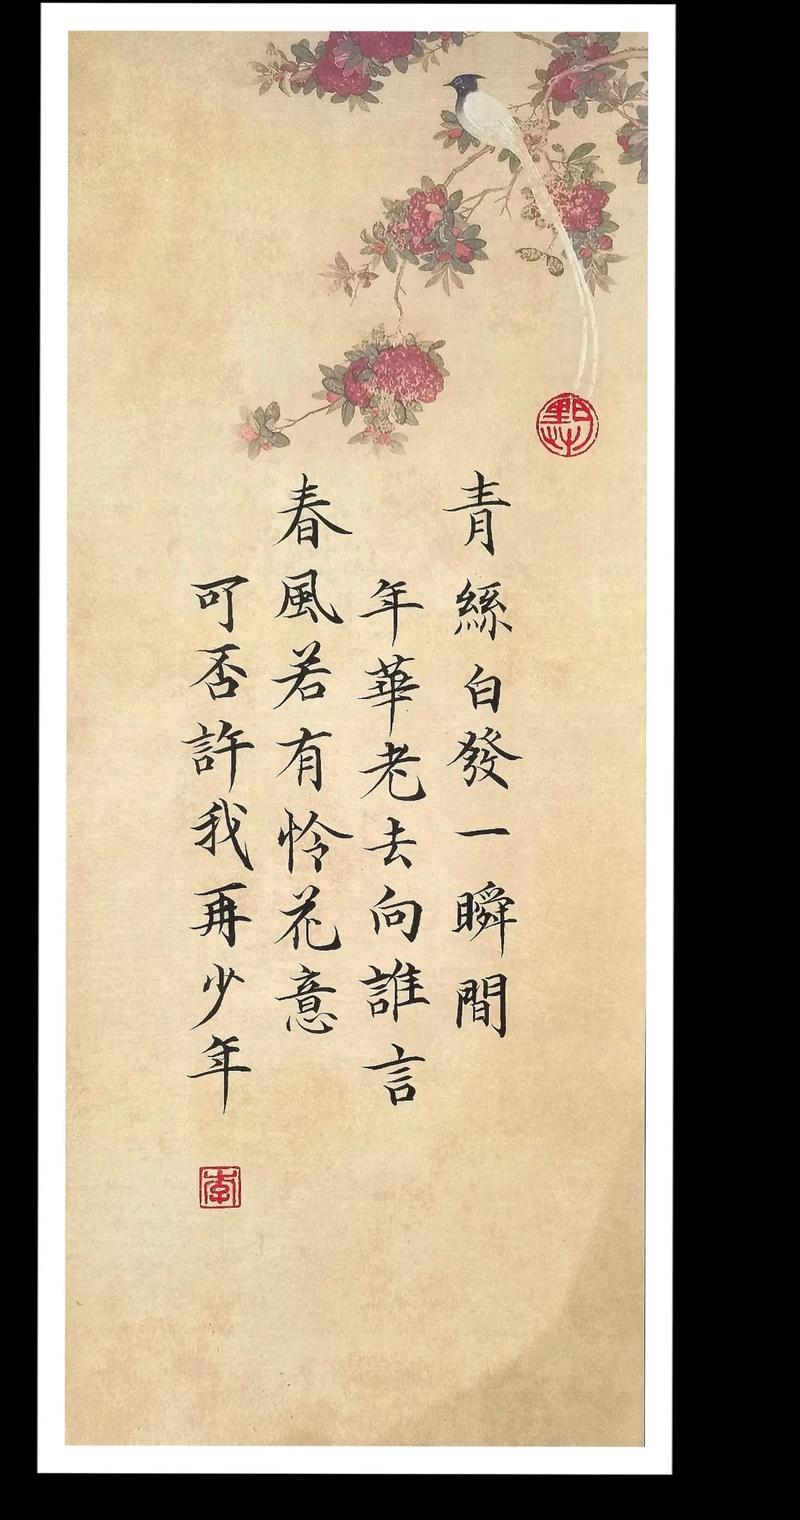 青絲白發一瞬間
年華老去向誰言
春風若有憐花意
可否許我再少年